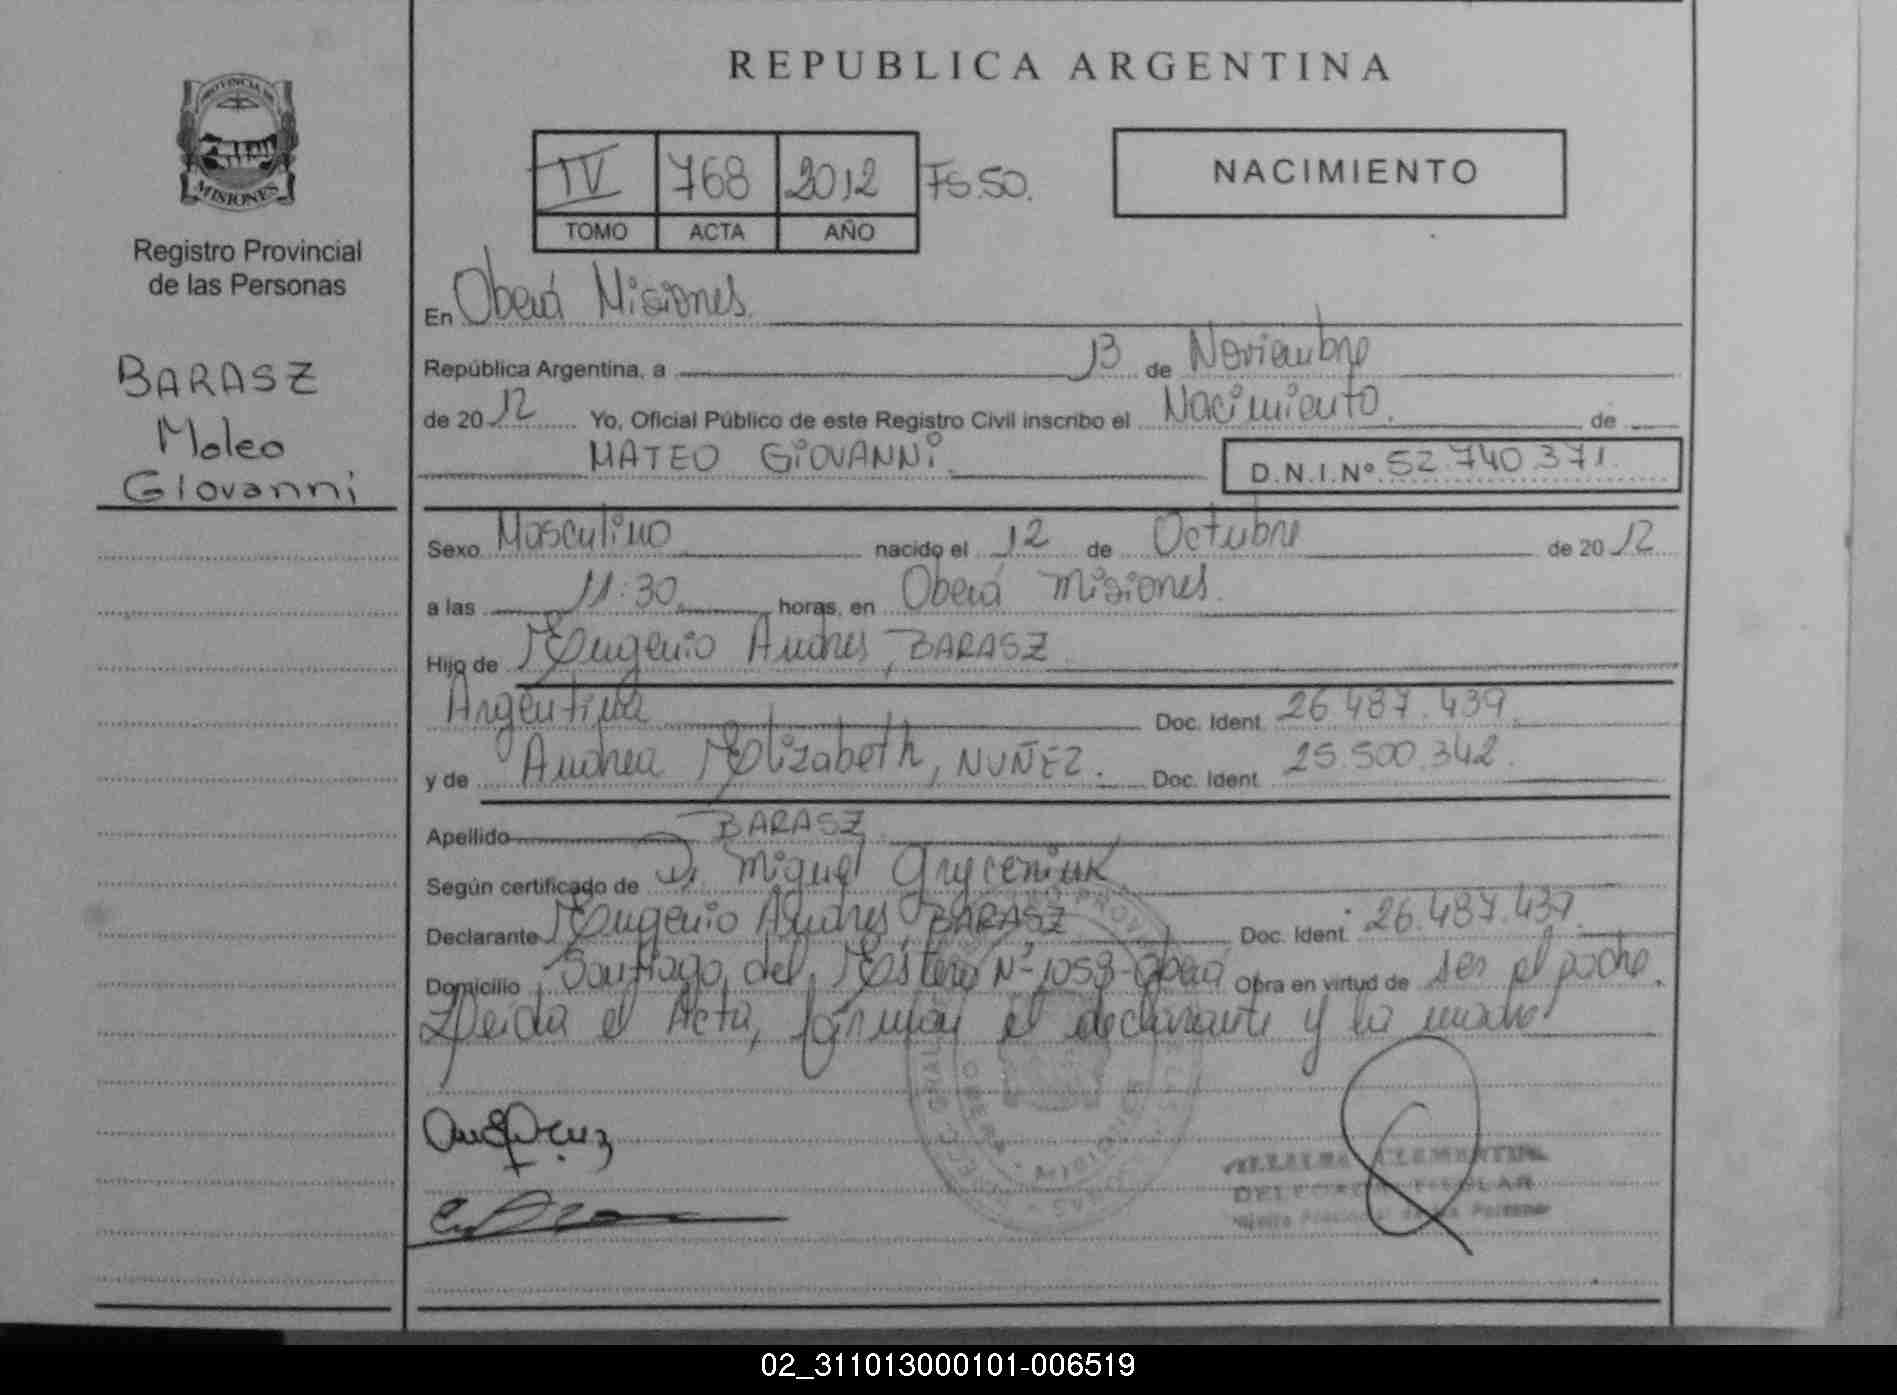 PROVINCIA DE
MISIONES
Registro Provincial
de las Personas
BARASZ
Mateo
Giovanni
REPUBLICA ARGENTINA
IV 768 2012 Fs.50.
TOMO ACTA AÑO
NACIMIENTO
En Oberá Misiones.
República Argentina, a 13 de Noviembre
de 2012 Yo, Oficial Público de este Registro Civil inscribo el Nacimiento. de
MATEO GIOVANNI. D.N.I.Nº 52.740.371.
Sexo Masculino nacido el 12 de Octubre de 2012
a las 11:30 horas, en Oberá Misiones.
Hijo de Eugenio Andres, BARASZ
Argentina Doc. Ident. 26.487.439
y de Andrea Elizabeth, NUÑEZ. Doc. Ident. 25.500.342.
Apellido BARASZ
Según certificado de Dr. Miguel Gryceniuk
Declarante Eugenio Andres BARASZ Doc. Ident. 26.487.439
Domicilio Santiago del Estero Nº 1053-Oberá Obra en virtud de ser el padre.
Leída el Acta, firman el declarante y la madre
OBERA - MISIONES
VILLALBA CLEMENTINA
DELEGADA TITULAR
Provincial de las Personas
02_311013000101-006519